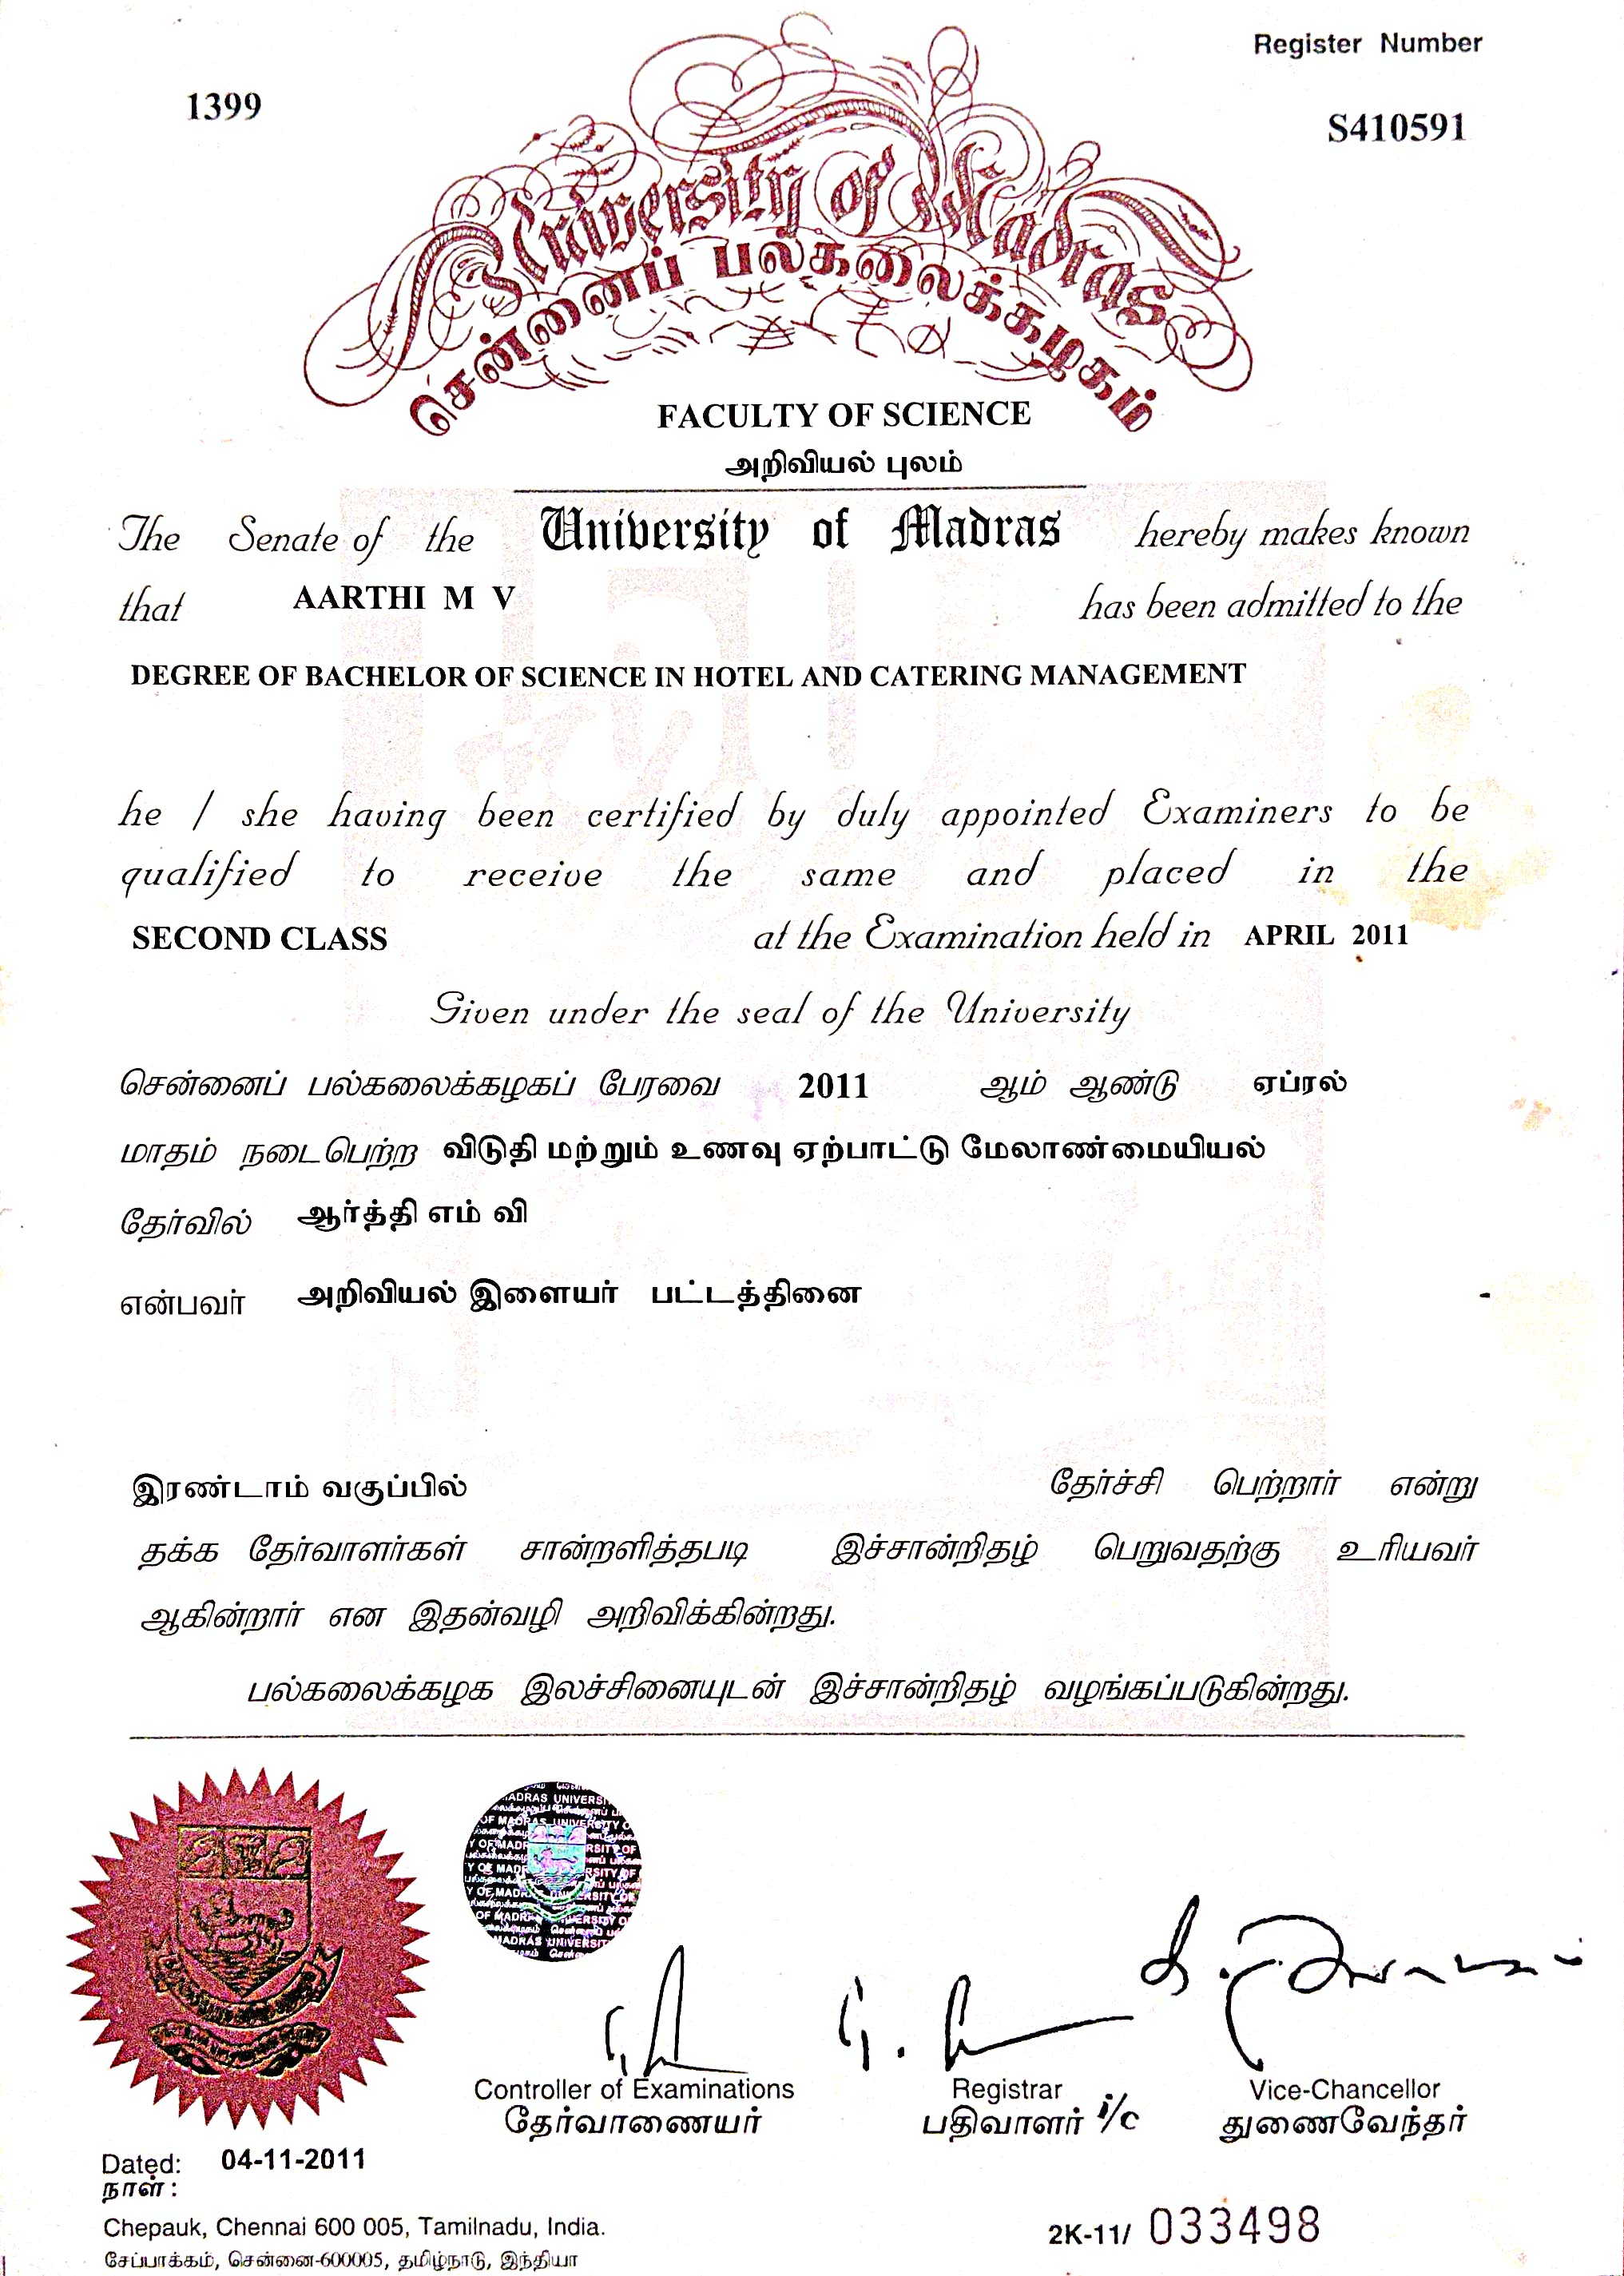 Register Number
1399
S410591
University of Madras
சென்னைப் பல்கலைக்கழகம்
FACULTY OF SCIENCE
அறிவியல் புலம்
The Senate of the University of Madras hereby makes known
that AARTHI M V has been admitted to the
DEGREE OF BACHELOR OF SCIENCE IN HOTEL AND CATERING MANAGEMENT
he / she having been certified by duly appointed Examiners to be
qualified to receive the same and placed in the
SECOND CLASS at the Examination held in APRIL 2011
Given under the seal of the University
சென்னைப் பல்கலைக்கழகப் பேரவை 2011 ஆம் ஆண்டு ஏப்ரல்
மாதம் நடைபெற்ற விடுதி மற்றும் உணவு ஏற்பாட்டு மேலாண்மையியல்
தேர்வில் ஆர்த்தி எம் வி
என்பவர் அறிவியல் இளையர் பட்டத்தினை
இரண்டாம் வகுப்பில் தேர்ச்சி பெற்றார் என்று
தக்க தேர்வாளர்கள் சான்றளித்தபடி இச்சான்றிதழ் பெறுவதற்கு உரியவர்
ஆகின்றார் என இதன்வழி அறிவிக்கின்றது.
பல்கலைக்கழக இலச்சினையுடன் இச்சான்றிதழ் வழங்கப்படுகின்றது.
Controller of Examinations
தேர்வாணையர்
Registrar
பதிவாளர் i/c
Vice-Chancellor
துணைவேந்தர்
Dated: 04-11-2011
நாள் :
Chepauk, Chennai 600 005, Tamilnadu, India.
சேப்பாக்கம், சென்னை-600005, தமிழ்நாடு, இந்தியா
2K-11/ 033498